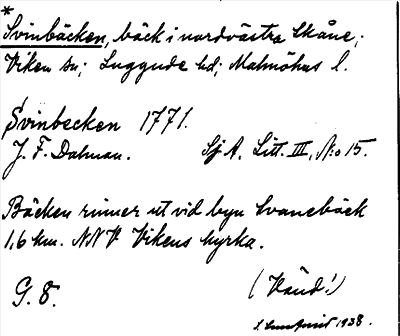 *
Svinbäcken, bäck i nordvästra Skåne;
Viken sn; Luggude hd; Malmöhus l.
Svinbecken 1771.
J. F. Dalman. Sj A. Litt. III, N:o 15.
Bäcken rinner ut vid byn Svanebäck
1,6 km. NNV Vikens kyrka.
G. 8. (Vänd!)
1938.